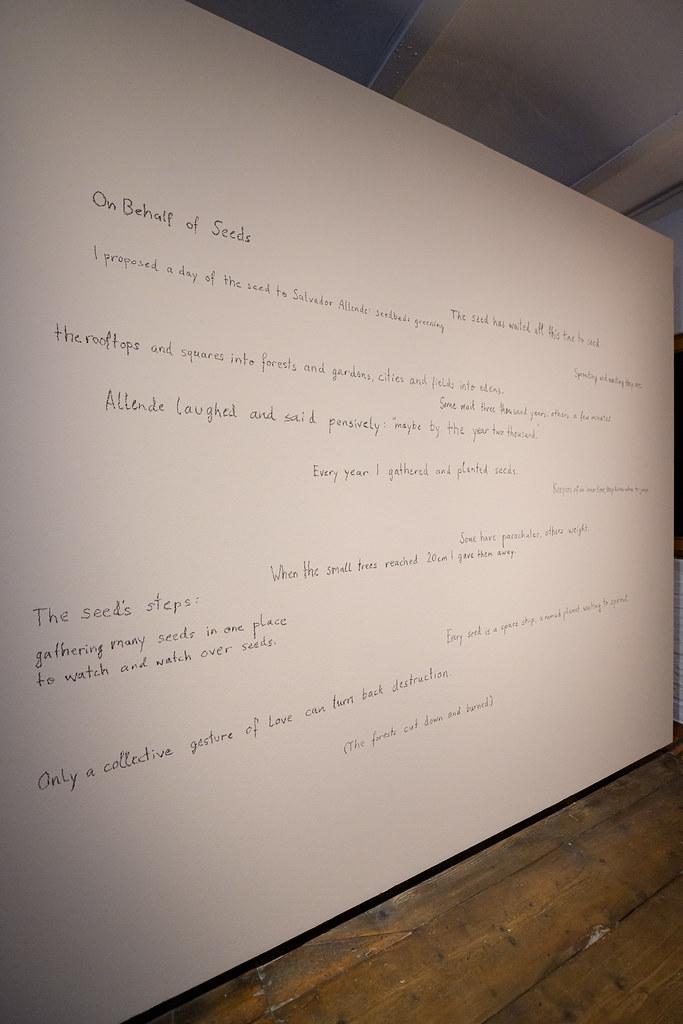 On Behalf of Seeds
I proposed a day of the seed to Salvador Allende: seedbeds greening
the rooftops and squares into forests and gardens, cities and fields into edens.
Allende laughed and said pensively: "maybe by the year two thousand."
Every year I gathered and planted seeds.
When the small trees reached 20cm I gave them away.
The seed's steps:
gathering many seeds in one place
to watch and watch over seeds.
Only a collective gesture of Love can turn back destruction.
(The forests cut down and burned)
The seed has waited all this time to seed
Sprouting and
Some wait three thousand years, others a few minutes
Keepers of an inner time, they know when to
Some have parachutes, others weight.
Every seed is a space ship, a nomad planet waiting to sprout